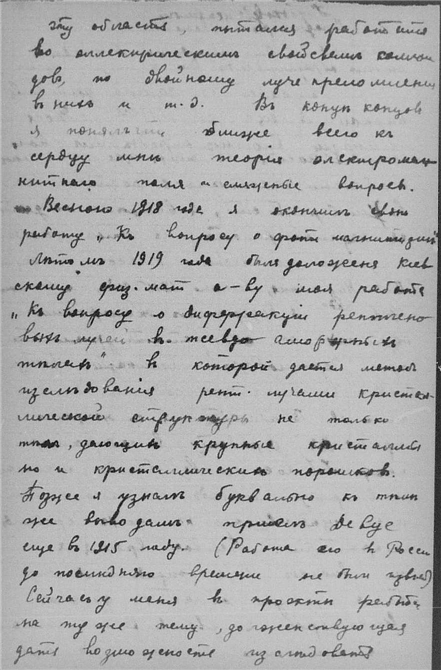 эту область, пытался работать
по электрическим свойствам коллои
дов, по двойному лучепреломлению
в них и т.д. В конце концов
я понял что ближе всего к
сердцу мне теорія электромаг
нитнаго поля и смежные вопросы.
Весною 1918 года я окончил свою
работу „Къ вопросу о
Летомъ 1919 года была доложена Кіев
скому физ.-мат о-ву моя работа
„Къ вопросу о диффракціи рентгено
выхъ лучей въ псевдо аморфныхъ
телахъ" в которой дается методъ
изследованія рент. лучами кристал
лической структуры не только
телъ, дающихъ крупные кристаллы
но и кристаллическихъ порошков.
Позже я узналъ буквально къ темъ
же выводамъ пришелъ Дебуе
еще въ 1915 году. (Работа его в Россіи
до последняго времени не была извест)
Сейчасъ у меня в проекте работа
на ту же тему, долженствующая
дать возможность изследовать